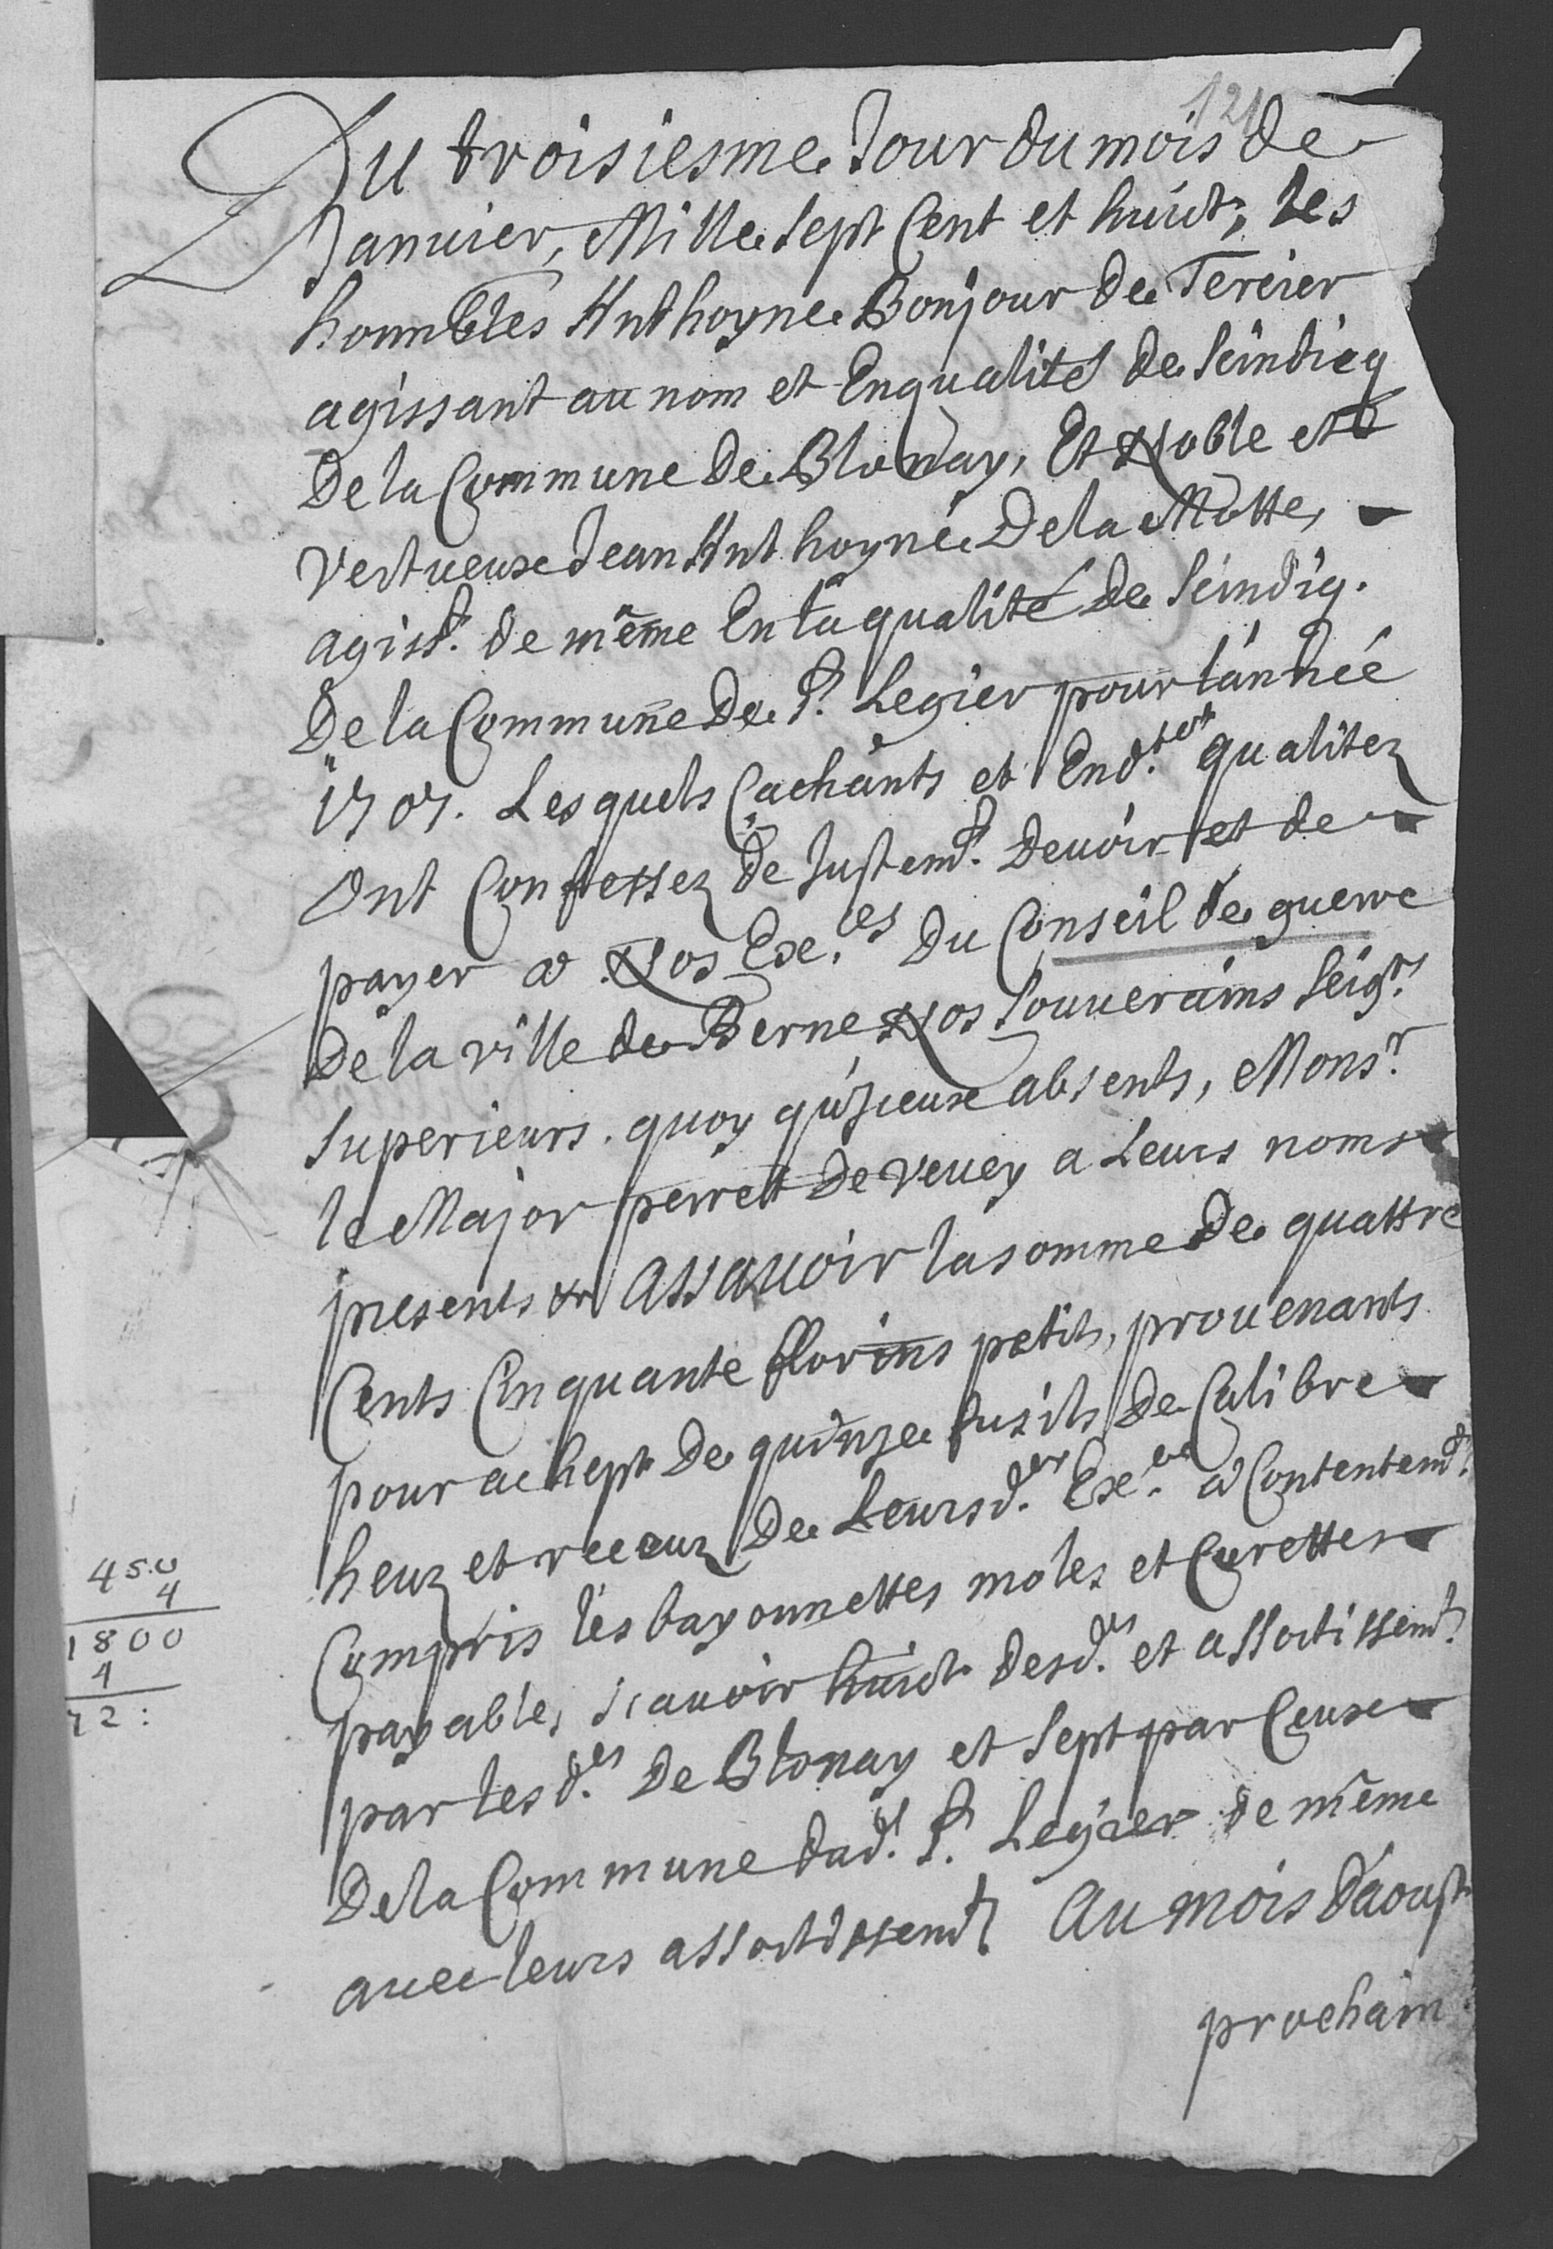 121
Du troisiesme Jour du mois de
Januier, Mille Sept Cent et huict, les
honn̄bles Anthoyne Bonjour de Tercier
agissant au nom et En qualité de Seindicq
De la Commune De Blonay, Et Noble et
vertueux Jean Anthoyne De la Motte,
agiss.t de même En la qualité de Seindiq.
De la Commune De St. Legier pour l'année
1707. Lesquels Cachants et End.tes qualitez
Ont Confessez de Justem.t Devoir et de
payer a Nos Exe.es Du Conseil de guerre
De la ville de Berne Nos Souuerains Seig.rs
Superieurs. quoy qu'Jceux absents, Mons.r
le Major perret De veuey a Leurs noms
presents &a Assauoir la somme De quattre
Cents Cinquante florins petits, prouenants
pour achept De quinze fusils De Calibre
heuz et receuz De Leursd.es Exe.es a Contentem.t
Compris les bayonnettes moles et Curettes
payable, scauoir huict desd.ts et assortissem.t
par les d.ts De Blonay et Sept par Ceux
De la Commune dud.t St. Legier de même
auec leurs assortissem.ts Au mois d'aoust
prochain
450
4
1800
4
72: